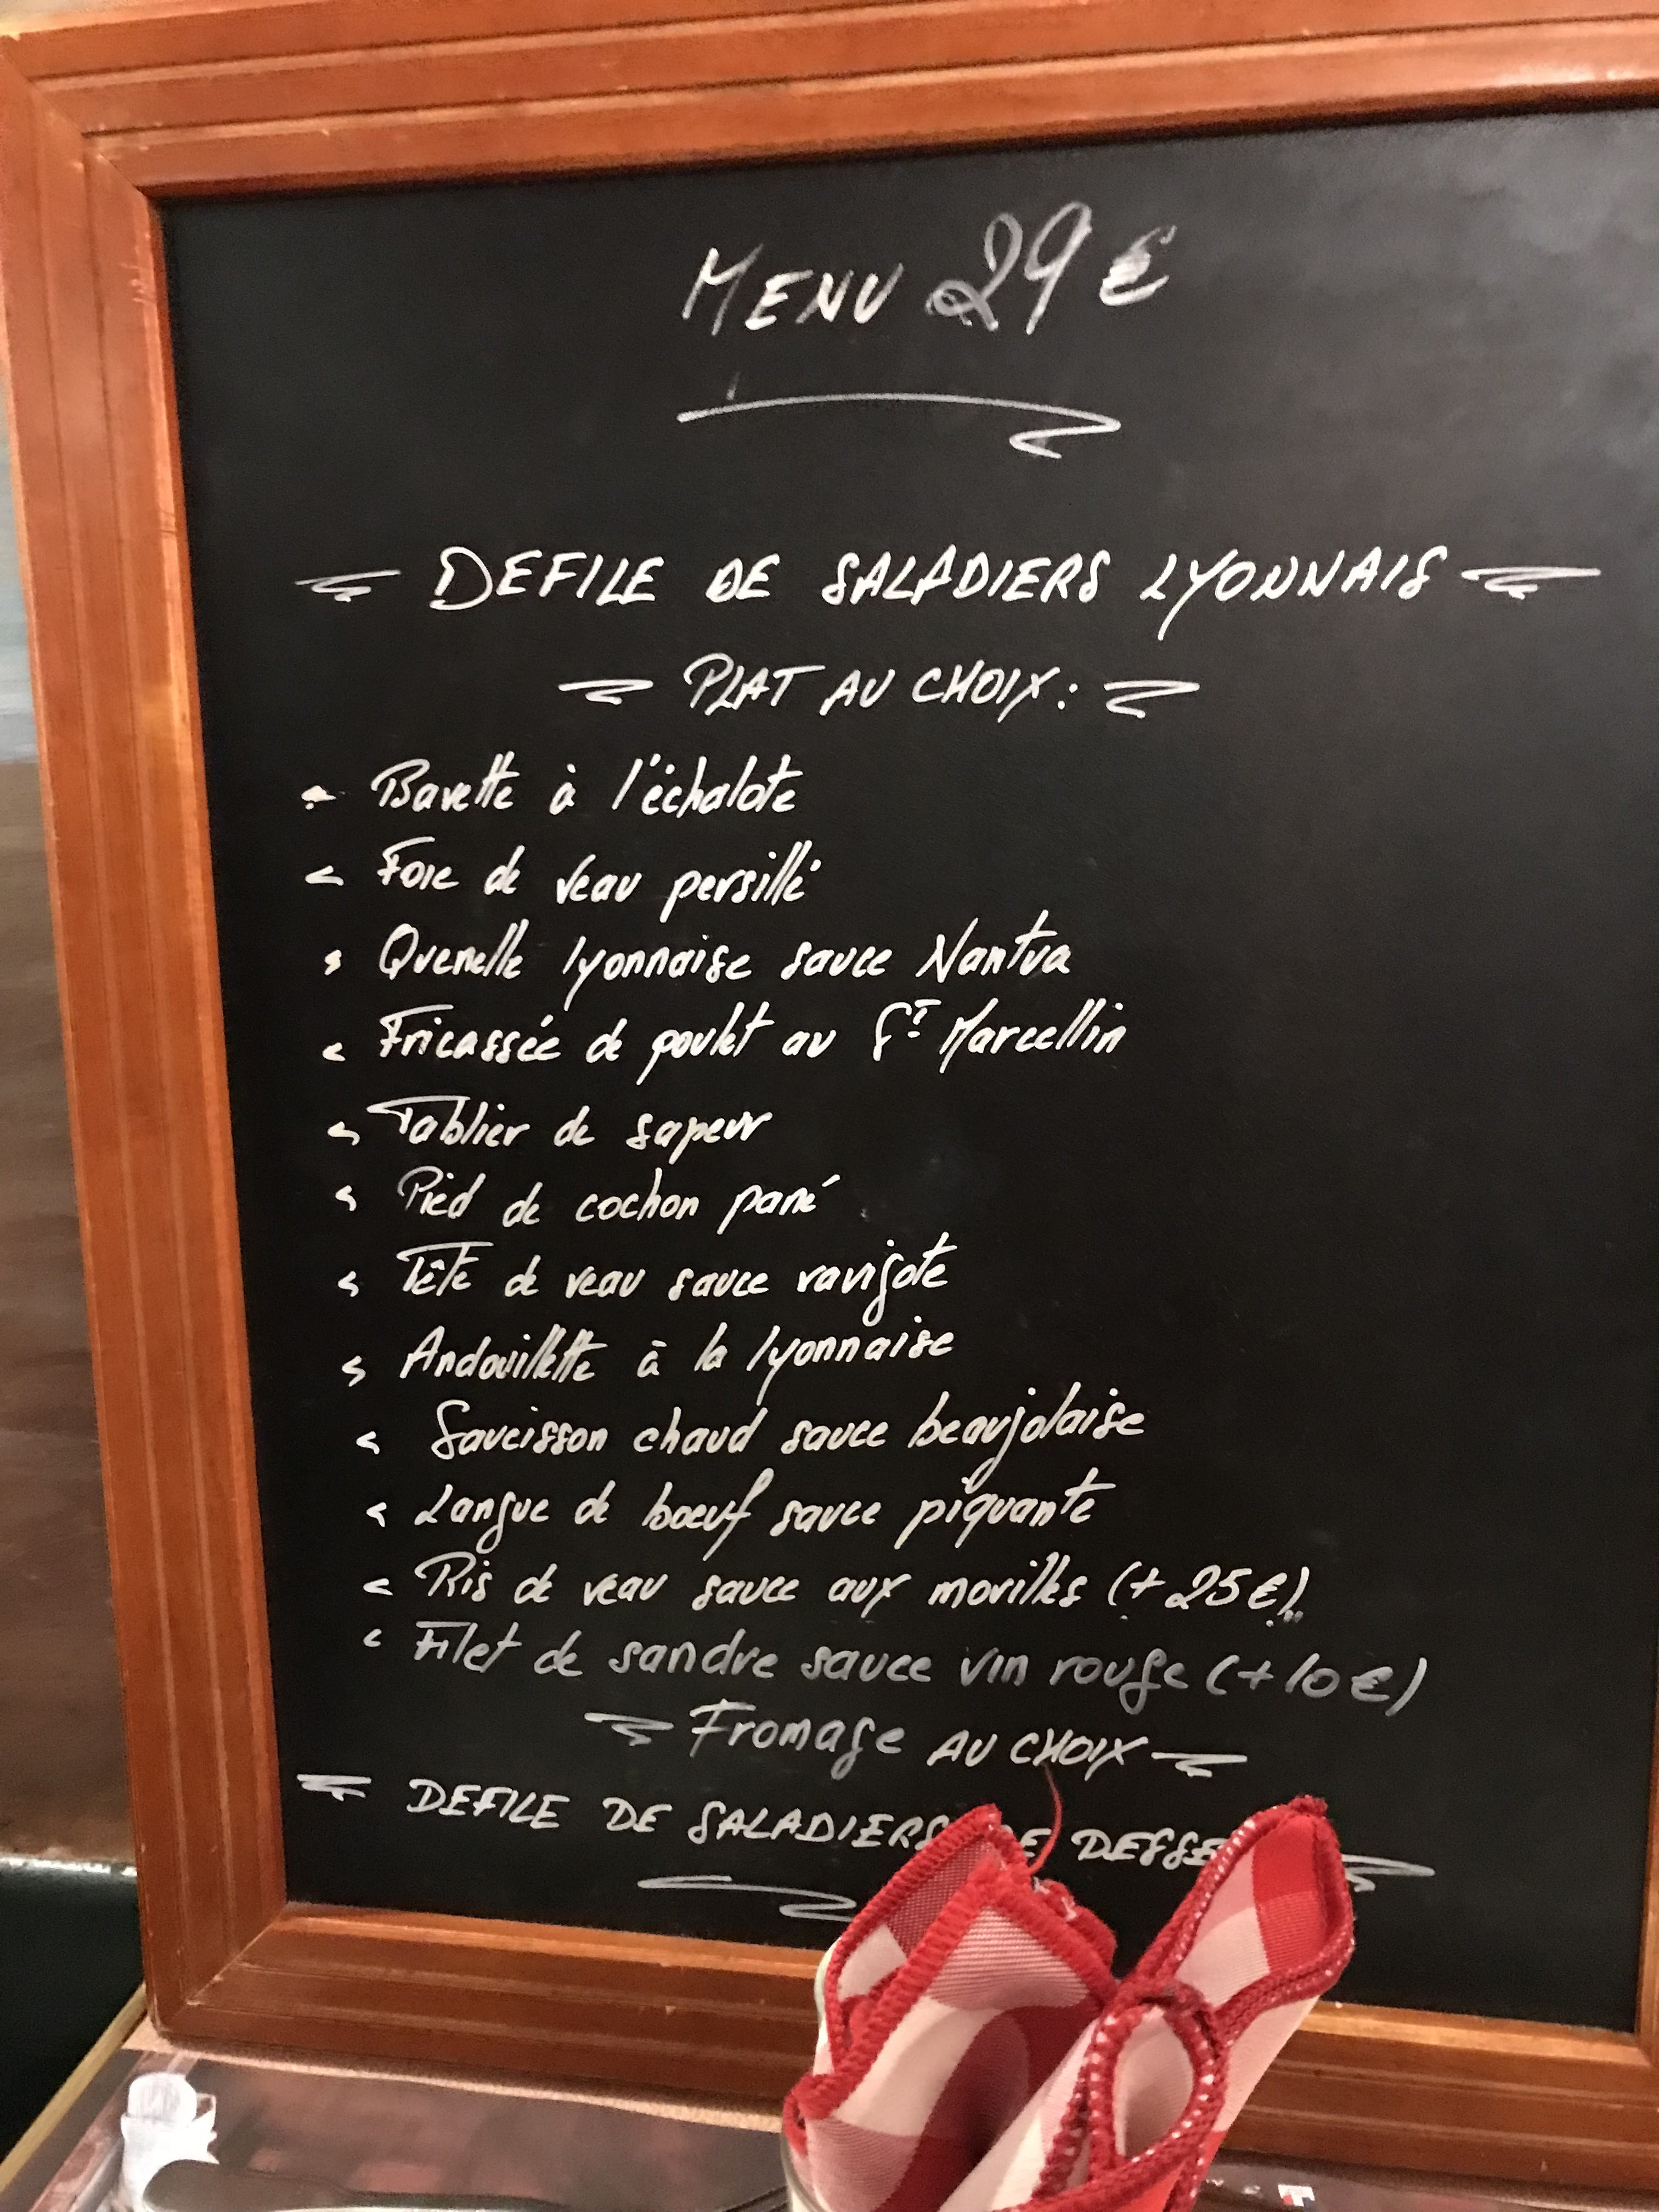 MENU 29 €
DEFILE DE SALADIERS LYONNAIS
PLAT AU CHOIX:
Bavette à l'échalote
Foie de veau persillé
Quenelle lyonnaise sauce Nantua
Fricassée de poulet au St Marcellin
Tablier de sapeur
Pied de cochon pané
Tête de veau sauce ravigote
Andouillette à la lyonnaise
Saucisson chaud sauce beaujolaise
Langue de boeuf sauce piquante
Ris de veau sauce aux morilles (+25€)
Filet de sandre sauce vin rouge (+10€)
Fromage AU CHOIX
DEFILE DE SALADIERS